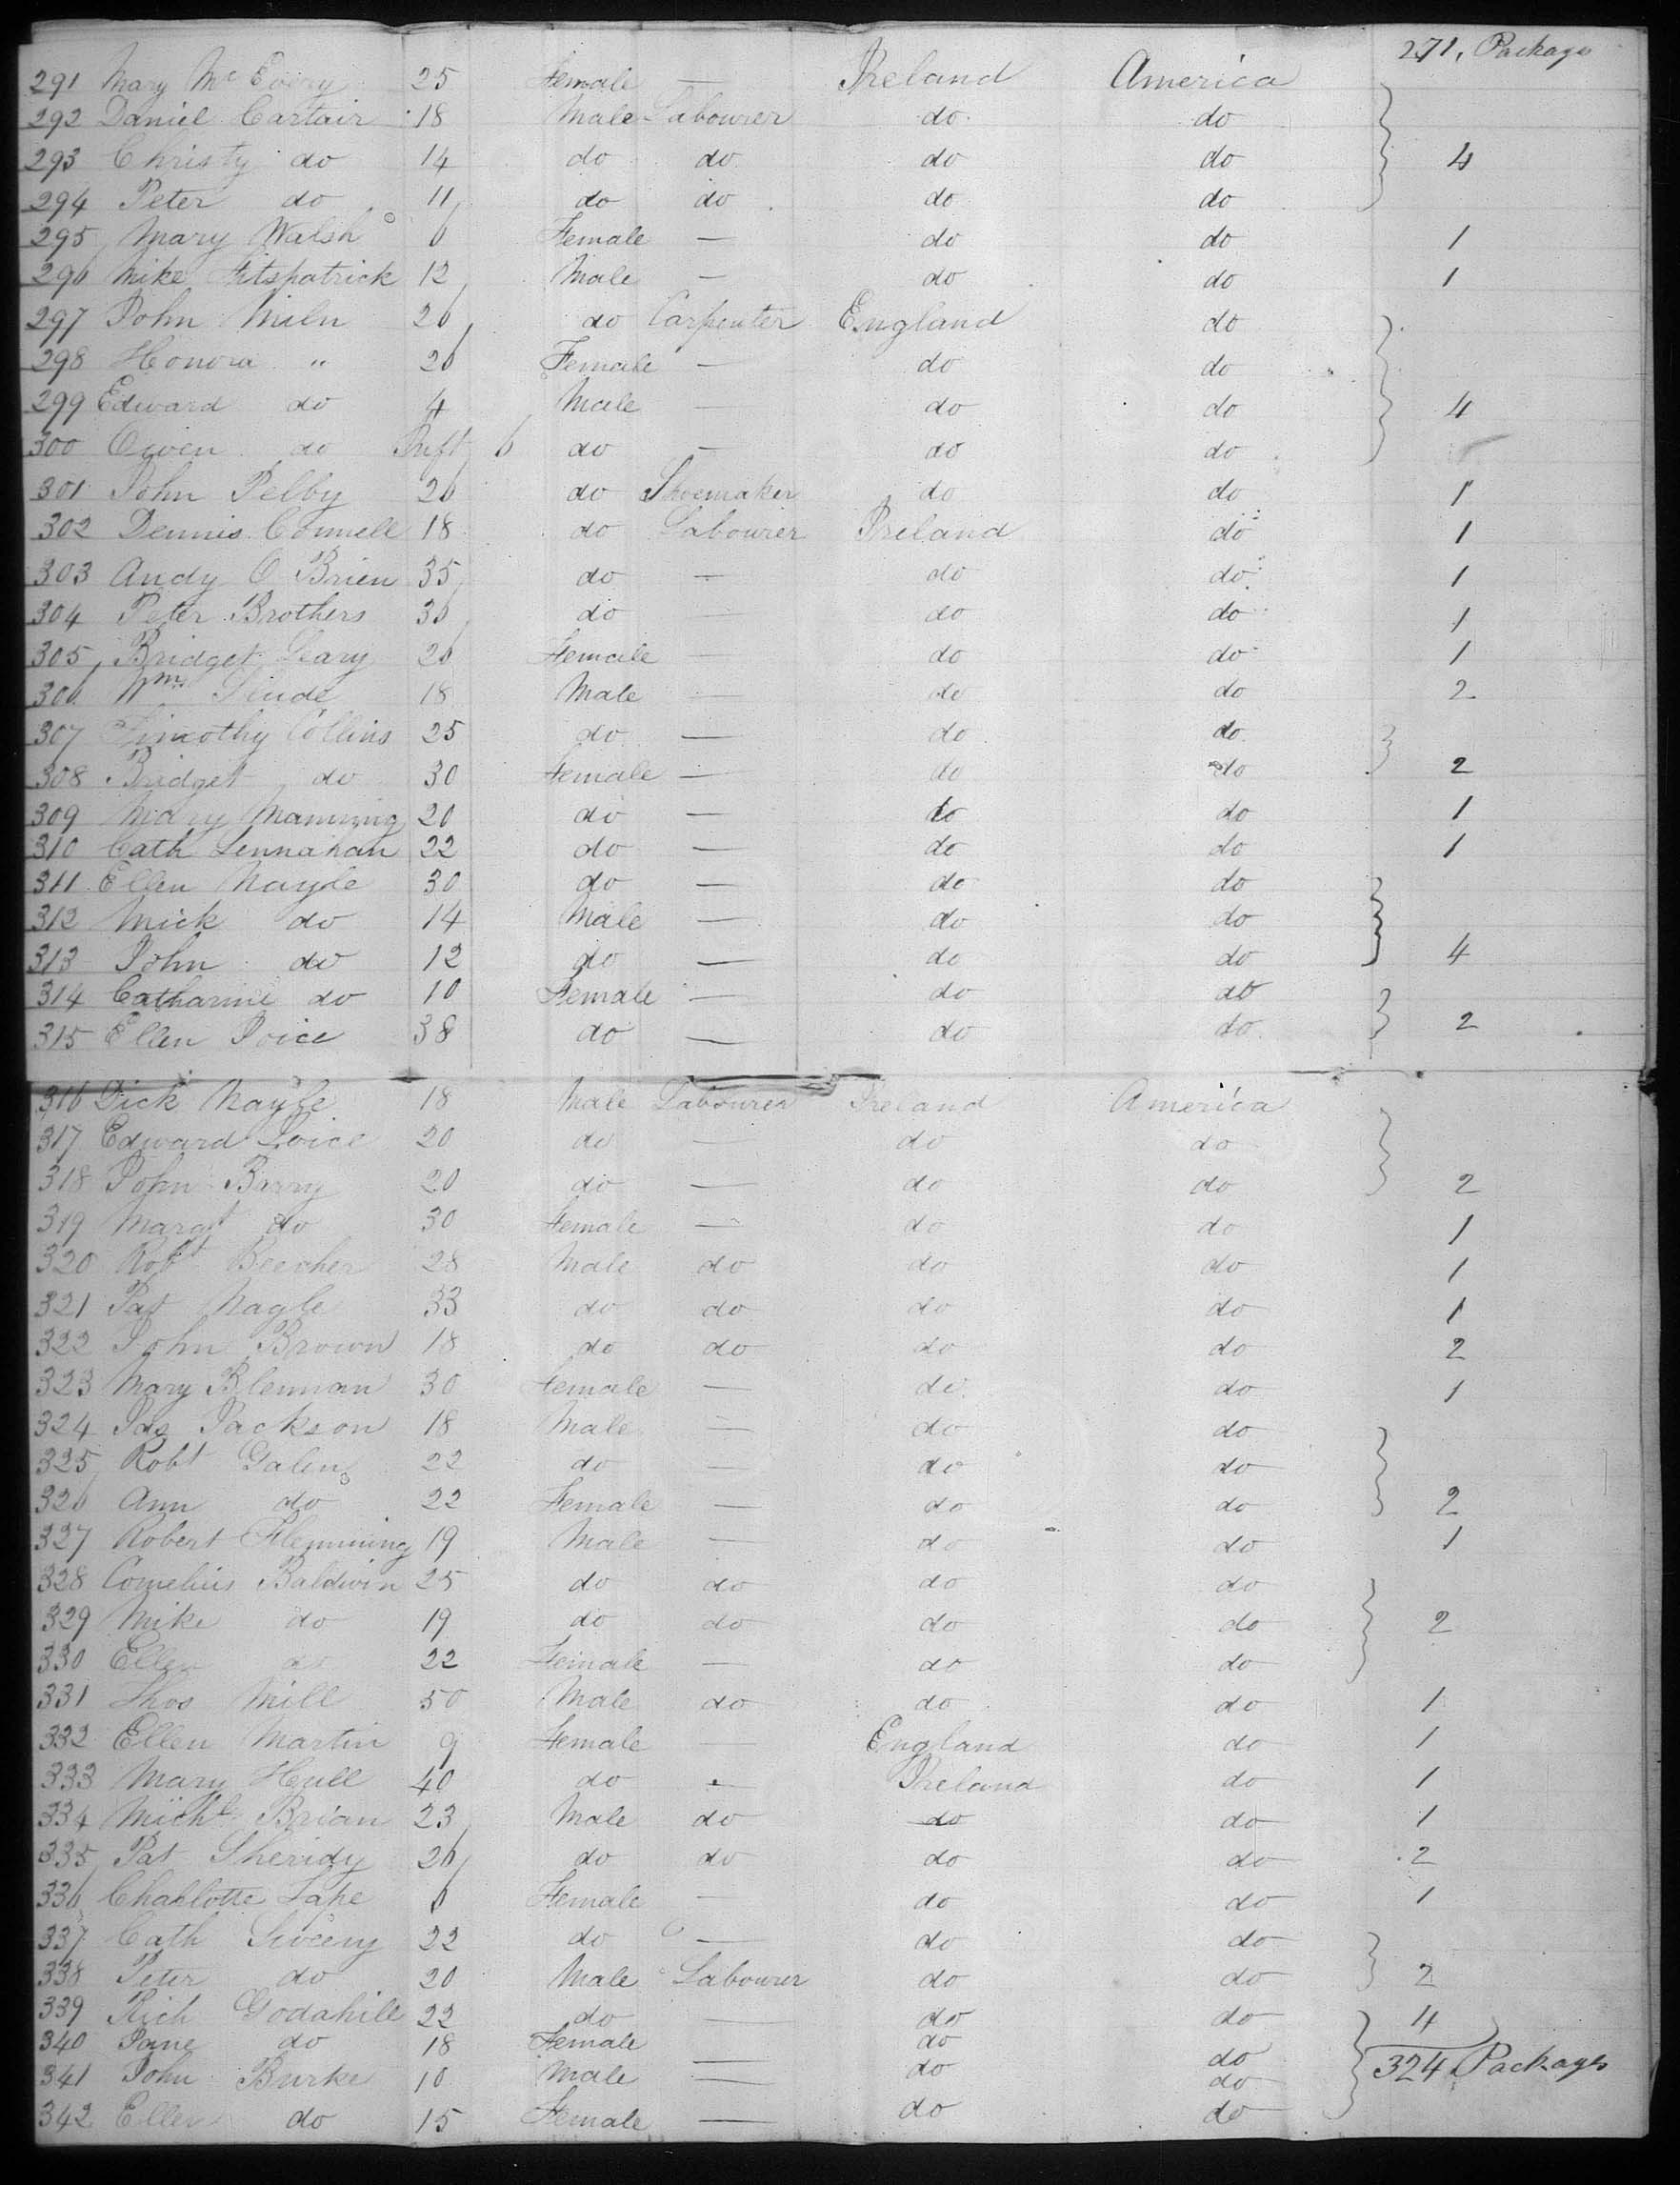 271, Packages
291 Mary Mc Evory 25 Female — Ireland America
292 Daniel Cartair 18 Male Labourer do do
293 Christy do 14 do do do do 4
294 Peter do 11 do do do do
295 Mary Walsh 6 Female — do do 1
296 Mike Fitspatrick 12 Male — do do 1
297 John Miln 26 do Carpenter England do
298 Honora " 26 Female — do do
299 Edward do 4 Male — do do 4
300 Owen do Inft 6 do — do do
301 John Pelby 26 do Shoemaker do do 1
302 Dennis Connell 18 do Labourer Ireland do 1
303 Andy O Brien 35 do — do do 1
304 Peter Brothers 36 do — do do 1
305 Bridget Leary 26 Female — do do 1
306 Wm 18 Male — do do 2
307 Timothy Collins 25 do — do do
308 Bridget do 30 Female — do do 2
309 Mary Manning 20 do — do do 1
310 Cath Lennahan 22 do — do do 1
311 Ellen Nagle 30 do — do do
312 Mick do 14 Male — do do
313 John do 12 do — do do 4
314 Catharine do 10 Female — do do
315 Ellen Joice 38 do — do do 2
316 Dick Nagle 18 Male Labourer Ireland America
317 Edward Joice 20 do — do do
318 John Barry 20 do — do do 2
319 Margt do 30 Female — do do 1
320 Robt Beecher 28 Male do do do 1
321 Pat Nagle 33 do do do do 1
322 John Brown 18 do do do do 2
323 Mary Blennan 30 Female — do do 1
324 Jas Jackson 18 Male — do do
325 Robt Galen 22 do — do do
326 Ann do 22 Female — do do 2
327 Robert Flemming 19 Male — do do 1
328 Cornelius Baldwin 25 do do do do
329 Mike do 19 do do do do 2
330 Ellen do 22 Female — do do
331 Thos Mill 50 Male do do do 1
332 Ellen Martin 9 Female — England do 1
333 Mary Hull 40 do — Ireland do 1
334 Michl Brian 23 Male do do do 1
335 Pat Sheridy 26 do do do do 2
336 Charlotte Lape 6 Female — do do 1
337 Cath Sweeny 22 do — do do
338 Peter do 20 Male Labourer do do 2
339 Rich Godahill 22 do — do do 4
340 Jane do 18 Female — do do
324 Packages
341 John Burke 10 Male — do do
342 Ellen do 15 Female — do do